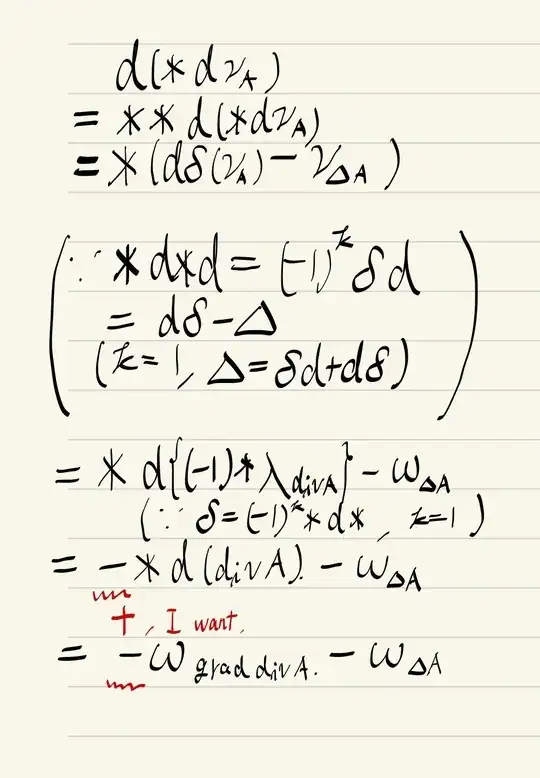 d(* dν_A)
= ** d(*dν_A)
= *(dδ(ν_A) − ν_ΔA )
∵ *d*d = (-1)^k δd
= dδ − Δ
(k=1, Δ = δd+dδ)
= * d{(-1)* λ_divA} − ω_ΔA
(∵ δ=(-1)^k * d* , k=1 )
= − * d (divA). − ω_ΔA
+, I want.
= −ω_grad divA. − ω_ΔA